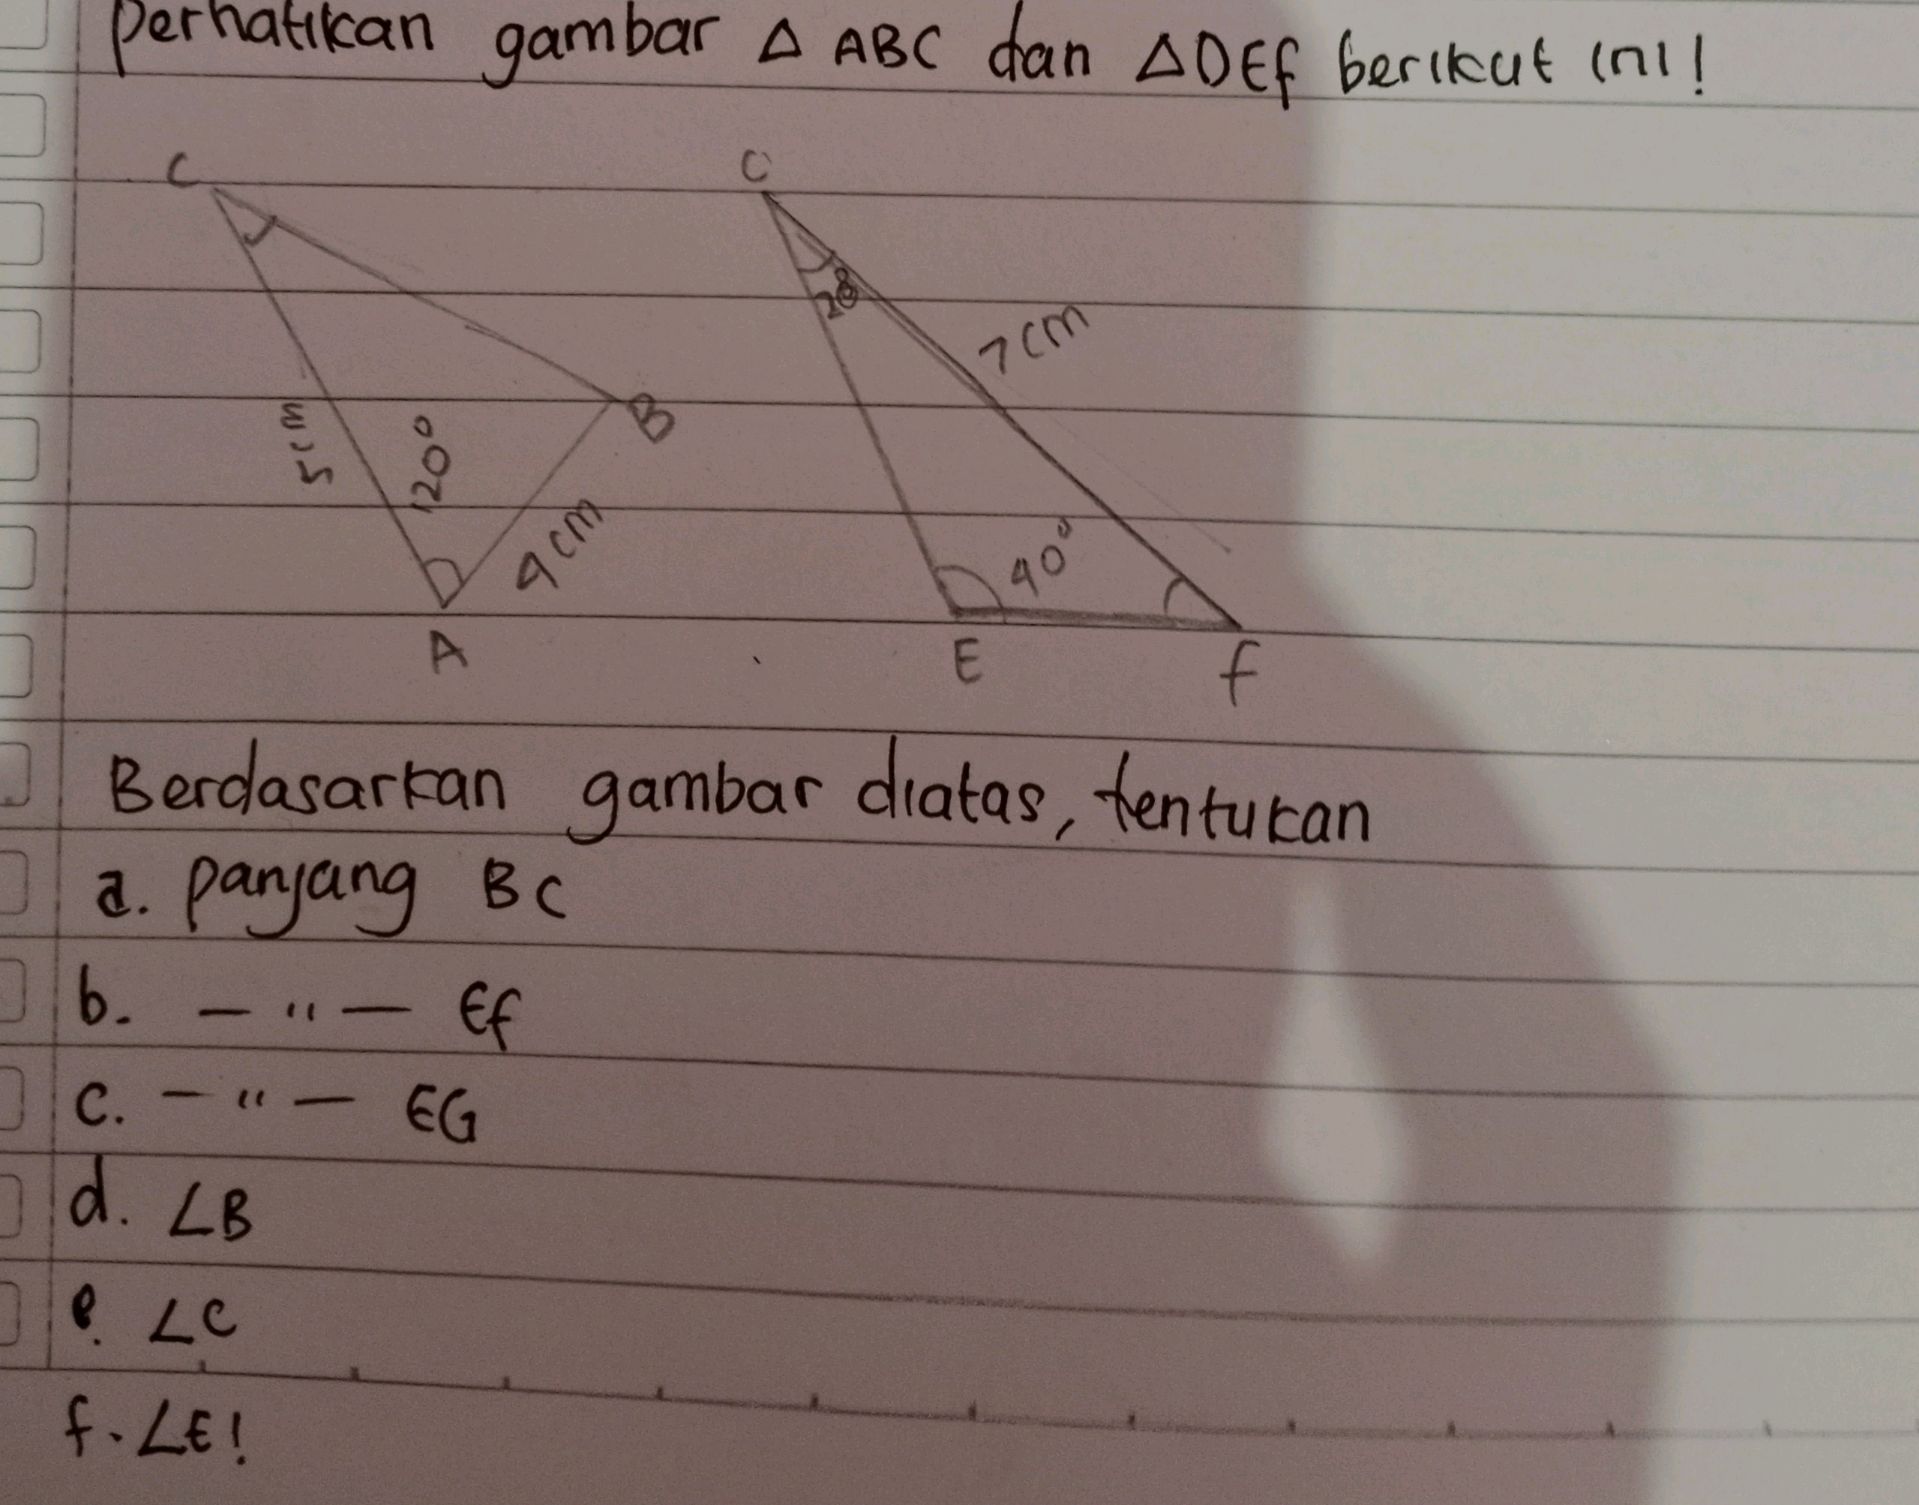 Perhatikan gambar △ ABC dan △DEF berikut ini!
C
C
28
7 cm
5cm
120°
B
4 cm
40°
A
E
F
Berdasarkan gambar diatas, tentukan
a. panjang BC
b. — " — EF
c. — " — EG
d. ∠B
e. ∠C
f. ∠E!